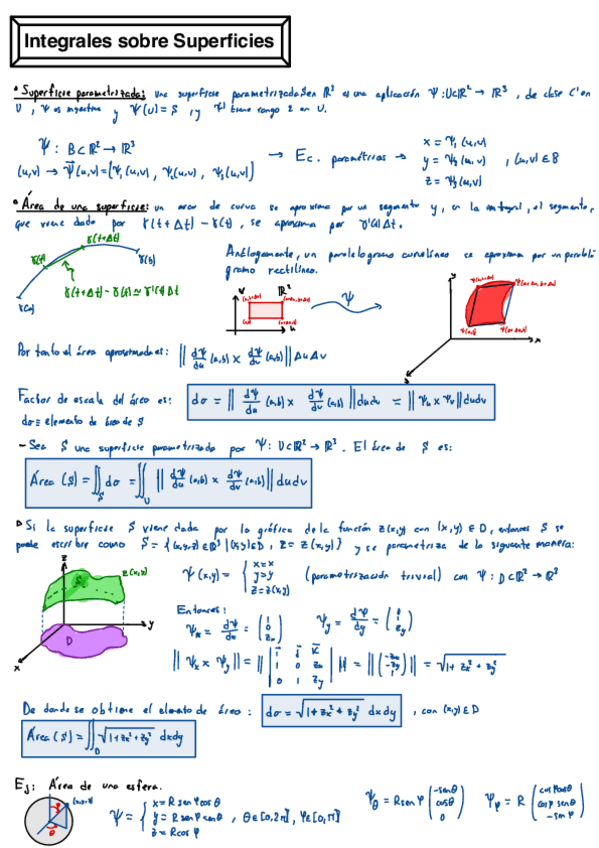 Integrales sobre Superficies
• Superficie parametrizada: una superficie parametrizada S en ℝ³ es una aplicación Ψ: U⊂ℝ² → ℝ³, de clase C¹ en
U, Ψ es inyectiva y Ψ(U) = S, y Ψ' tiene rango 2 en U.
Ψ : B⊂ℝ² → ℝ³
(u,v) → Ψ(u,v) = (Ψ₁(u,v), Ψ₂(u,v), Ψ₃(u,v))
→ Ec. paramétricas →
x = Ψ₁(u,v)
y = Ψ₂(u,v) , (u,v) ∈ B
z = Ψ₃(u,v)
• Área de una superficie: un arco de curva se aproxima por un segmento y, en la integral, el segmento,
que viene dado por γ(t+Δt) − γ(t), se aproxima por γ'(t)Δt.
γ(t+Δt)
γ(t)
γ(b)
γ(a)
γ(t+Δt) − γ(t) ≃ γ'(t)Δt
Análogamente, un paralelogramo curvilíneo se aproxima por un paralelo
gramo rectilíneo.
v
ℝ²
u
Ψ
y
x
z
Por tanto el área aproximada es: ‖ dΨ/du (a,b) × dΨ/dv (a,b) ‖ Δu Δv
Factor de escala del área es: dσ = ‖ dΨ/du (a,b) × dΨ/dv (a,b) ‖ du dv = ‖ Ψu × Ψv ‖ du dv
dσ ≡ elemento de área de S
– Sea S una superficie parametrizada por Ψ: U⊂ℝ² → ℝ³. El área de S es:
Área (S) = ∬_S dσ = ∬_U ‖ dΨ/du (a,b) × dΨ/dv (a,b) ‖ du dv
Si la superficie S viene dada por la gráfica de la función z(x,y) con (x,y) ∈ D, entonces S se
puede escribir como S = {(x,y,z) ∈ ℝ³ | (x,y) ∈ D, z = z(x,y)} y se parametriza de la siguiente manera:
z
S
z(x,y)
D
y
x
Ψ(x,y) = { x = x
y = y
z = z(x,y)
(parametrización trivial) con Ψ: D⊂ℝ² → ℝ³
Entonces:
Ψx = dΨ/dx = (1 0 zx)
Ψy = dΨ/dy = (0 1 zy)
‖ Ψx × Ψy ‖ = ‖ | i j k ; 1 0 zx ; 0 1 zy | ‖ = ‖ (−zx −zy 1) ‖ = √(1 + zx² + zy²)
De donde se obtiene el elemento de área: dσ = √(1 + zx² + zy²) dx dy , con (x,y) ∈ D
Área (S) = ∬_D √(1 + zx² + zy²) dx dy
Ej: Área de una esfera.
φ
θ
Ψ = { x = R sen φ cos θ
y = R sen φ sen θ , θ ∈ [0, 2π], φ ∈ [0, π]
z = R cos φ
Ψθ = R sen φ (−sen θ cos θ 0)
Ψφ = R (cos φ cos θ cos φ sen θ −sen φ)